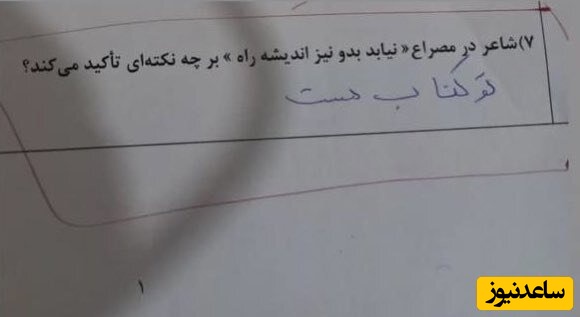 ۷) شاعر در مصراع « نیابد بدو نیز اندیشه راه » بر چه نکته‌ای تأکید می‌کند؟
تو کتاب هست
۱
ساعدنیوز